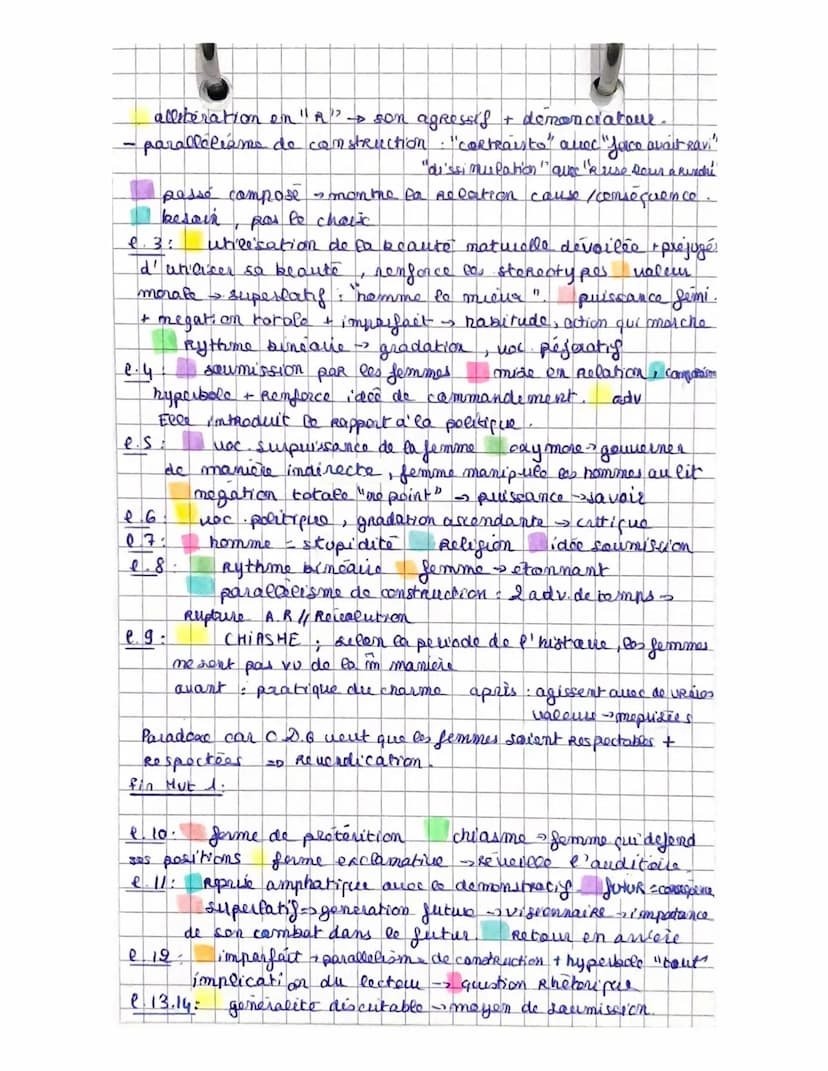 allitération en "R" → son agressif + dénonciateur.
- parallélisme de construction : "contrainte" avec "force avait ravi"
"dissimulation" avec "ruse leur a rendu"
passé composé → montre la relation cause/conséquence.
besoin, pas le choix
l.3 : utilisation de la beauté naturelle dévoilée + préjugé
d'utiliser sa beauté, renforce les stéréotypes valeur
morale → superlatif : "homme le mieux". puissance fémi.
+ négation totale + imparfait → habitude, action qui marche
Rythme binéaire → gradation, voc. péjoratif
l.4 : soumission par les femmes mise en relation, comparaison
hyperbole + renforce idée de commandement. adv
Elle introduit le rapport à la politique.
l.5 : voc. surpuissance de la femme oxymore → gouverner
de manière indirecte, femme manipule les hommes au lit
négation totale "ne point" → puissance → savoir
l.6 : voc. politique, gradation ascendante → critique
l.7 : homme = stupidité Religion idée soumission
l.8 : rythme binéaire femme → étonnant
parallélisme de construction : 2 adv. de temps →
Rupture A.R // Révolution
l.9 : CHIASME ; selon la période de l'histoire, les femmes
ne sont pas vu de la m̂ manière
avant : pratique du charme après : agissent avec de vraies
valeurs → méprisées
Paradoxe car O.D.G veut que les femmes soient Respectables +
Respectées => Revendication.
fin Mvt 1 :
l.10. forme de prétérition chiasme → femme qui défend
ses positions forme exclamative → réveille l'auditoire
l.11 : Reprise amphatique avec le démonstratif. futur =
superlatif → génération future → visionnaire → importance
de son combat dans le futur. Retour en arrière
l.12 : imparfait + parallélisme de construction + hyperbole "tout"
implication du lecteur → question Rhétorique
l.13.14 : généralité discutable → moyen de soumission.